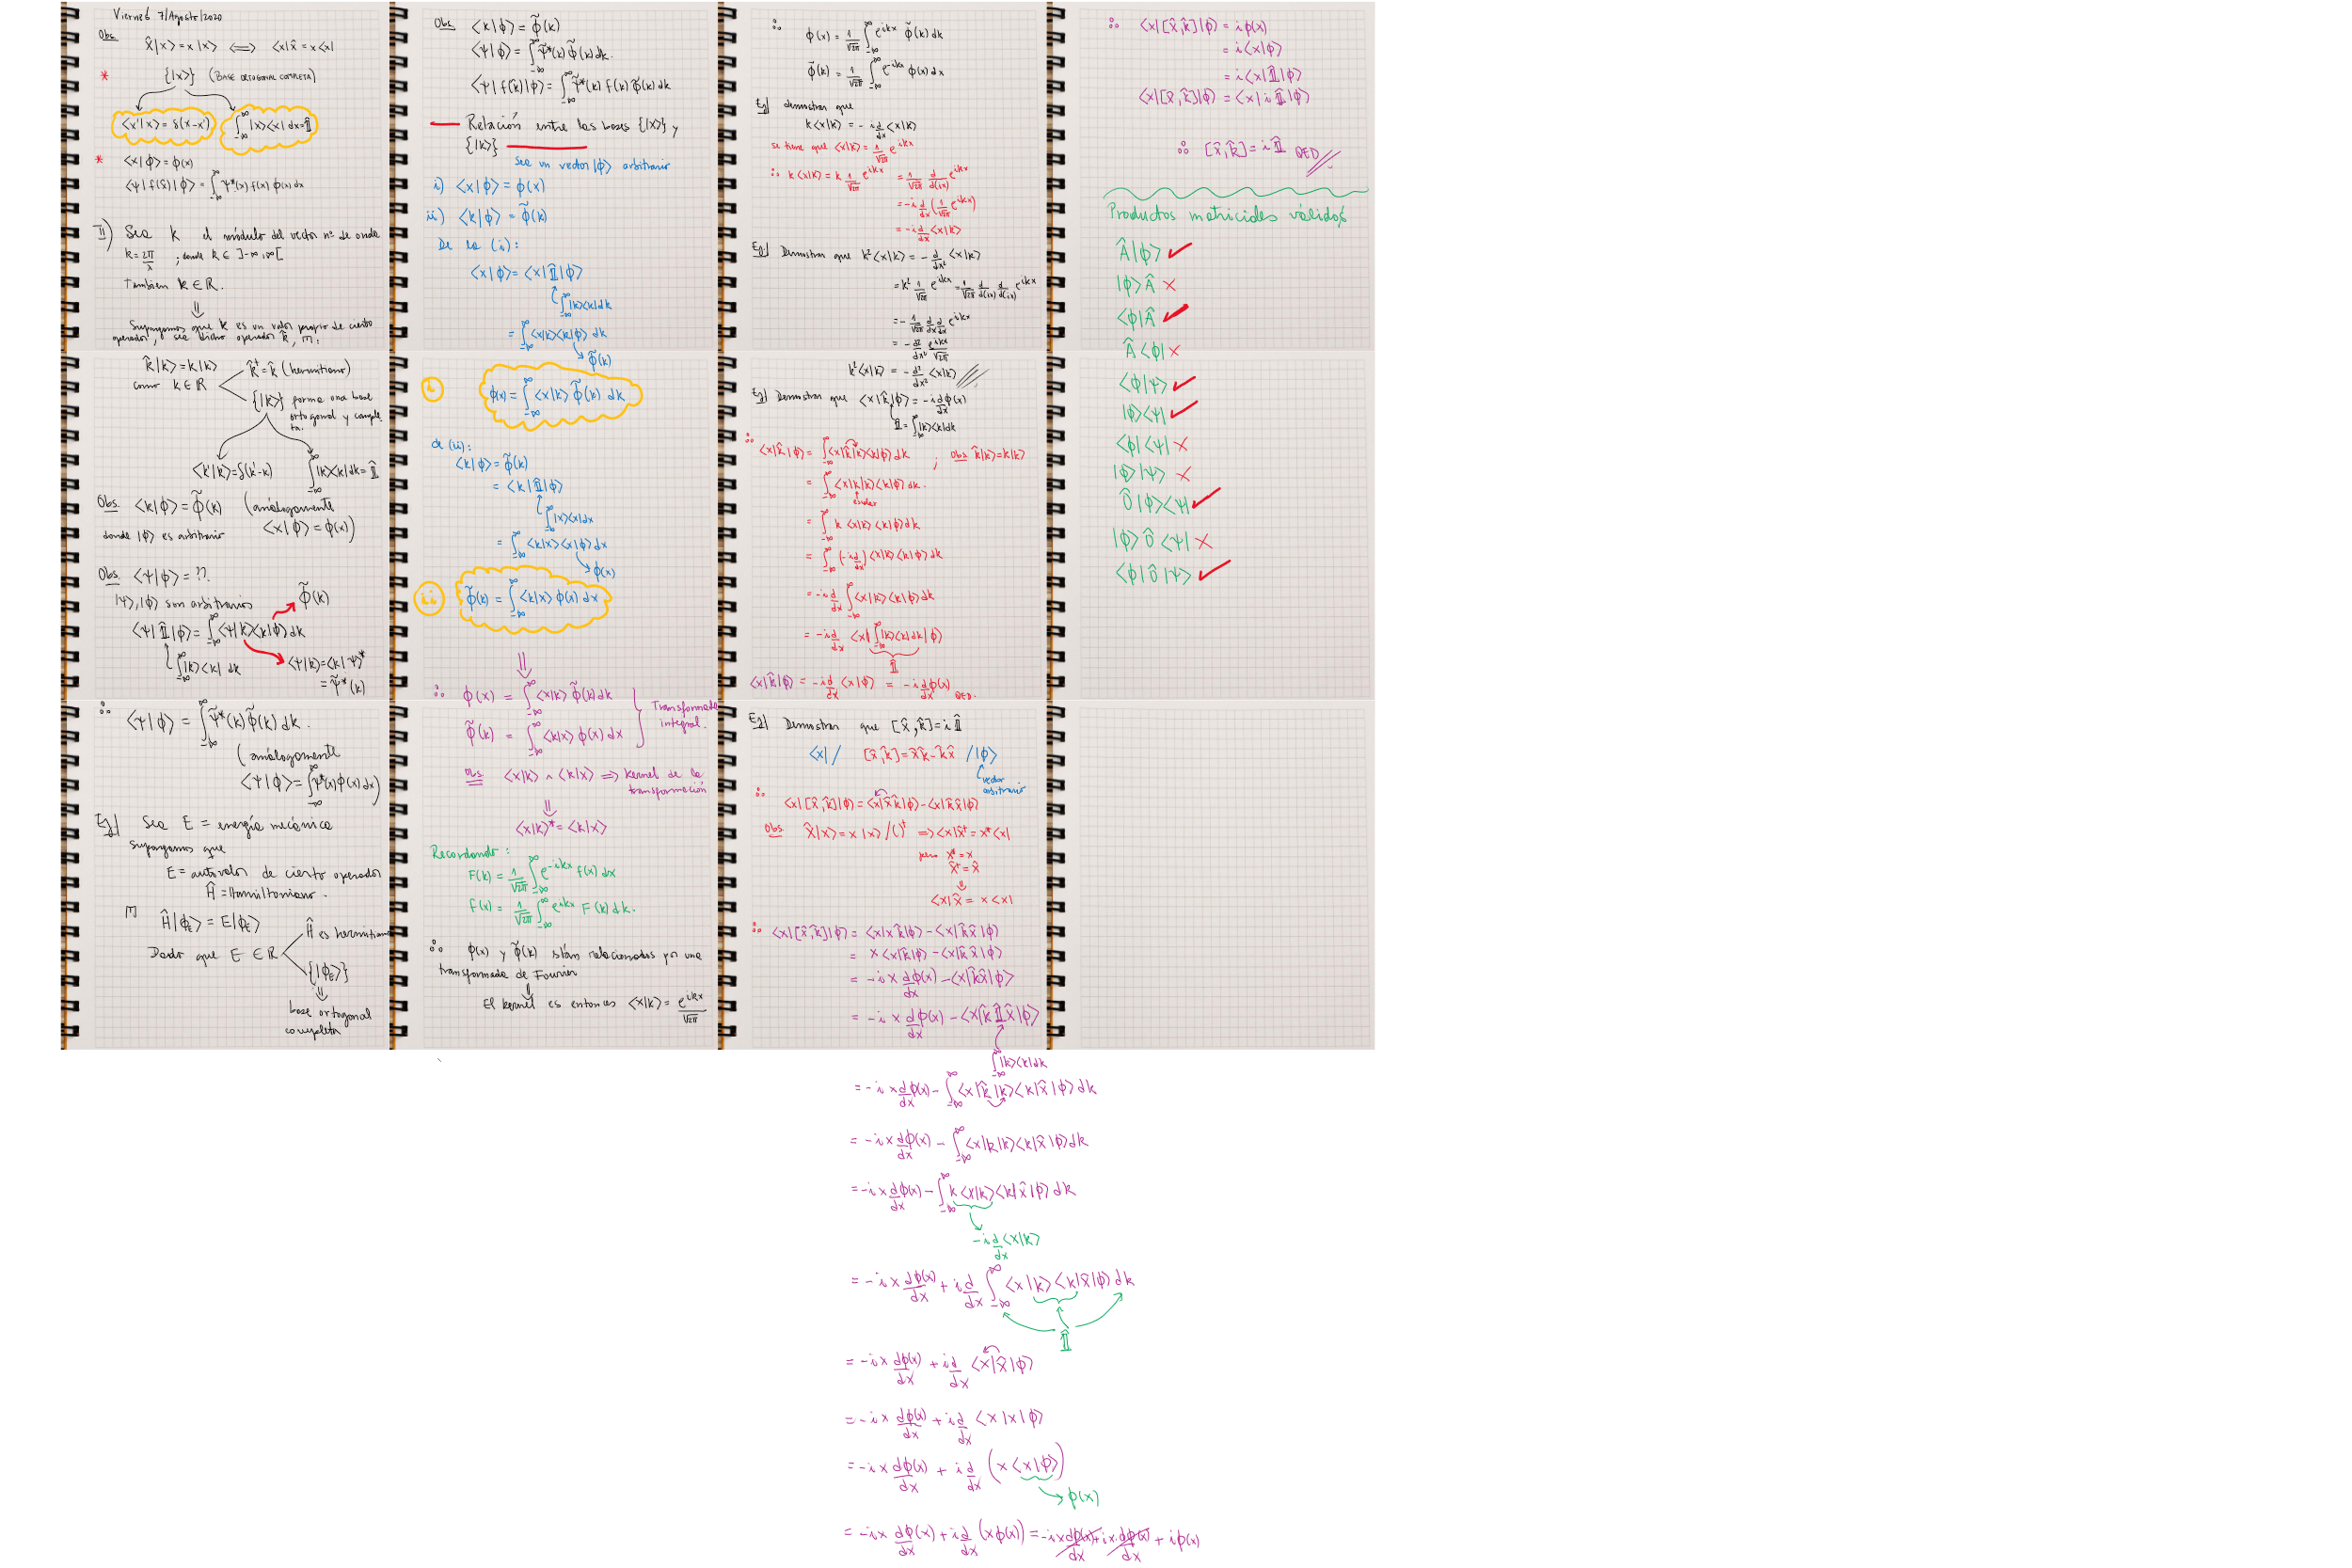 Viernes 7/Agosto/2020
Obs.
X̂|x> = x|x> ⟺ <x|x̂ = x<x|
* {|x>} (BASE ORTOGONAL COMPLETA)
<x'|x> = δ(x-x') ∫_{-∞}^{∞} |x><x| dx = 𝟙̂
* <x|ϕ> = ϕ(x)
<ψ|f(x̂)|ϕ> = ∫_{-∞}^{∞} ψ*(x) f(x) ϕ(x) dx
II) Sea k el módulo del vector nº de onda
k = 2π/λ ; donde k ∈ ]-∞,∞[
También k ∈ ℝ.
⇓
Supongamos que k es un valor propio de cierto
operador, sea dicho operador k̂, m:
k̂|k> = k|k>
como k ∈ ℝ
k̂† = k̂ (hermitiano)
{|k>} forma una base
ortogonal y comple
ta.
<k'|k> = δ(k'-k) ∫_{-∞}^{∞} |k><k| dk = 𝟙̂
Obs. <k|ϕ> = ϕ̃(k) (análogamente
donde |ϕ> es arbitrario <x|ϕ> = ϕ(x))
Obs. <ψ|ϕ> = ??.
|ψ>, |ϕ> son arbitrarios ϕ̃(k)
<ψ|𝟙̂|ϕ> = ∫_{-∞}^{∞} <ψ|k><k|ϕ> dk
∫_{-∞}^{∞} |k><k| dk <ψ|k> = <k|ψ>*
= ψ̃*(k)
∴ <ψ|ϕ> = ∫_{-∞}^{∞} ψ̃*(k) ϕ̃(k) dk.
(análogamente
<ψ|ϕ> = ∫_{-∞}^{∞} ψ*(x) ϕ(x) dx)
Ej| Sea E = energía mecánica
supongamos que
E = autovalor de cierto operador
Ĥ = Hamiltoniano.
m Ĥ|ϕ_E> = E|ϕ_E>
Dado que E ∈ ℝ
Ĥ es hermitiano
{|ϕ_E>}
⇓
base ortogonal
completa
Obs <k|ϕ> = ϕ̃(k)
<ψ|ϕ> = ∫_{-∞}^{∞} ψ̃*(k) ϕ̃(k) dk.
<ψ|f(k̂)|ϕ> = ∫_{-∞}^{∞} ψ̃*(k) f(k) ϕ̃(k) dk
Relación entre las bases {|x>} y
{|k>}
Sea un vector |ϕ> arbitrario
i) <x|ϕ> = ϕ(x)
ii) <k|ϕ> = ϕ̃(k)
De la (i):
<x|ϕ> = <x|𝟙̂|ϕ>
∫_{-∞}^{∞} |k><k| dk
= ∫_{-∞}^{∞} <x|k><k|ϕ> dk
ϕ̃(k)
i ϕ(x) = ∫_{-∞}^{∞} <x|k> ϕ̃(k) dk
de (ii):
<k|ϕ> = ϕ̃(k)
= <k|𝟙̂|ϕ>
∫_{-∞}^{∞} |x><x| dx
= ∫_{-∞}^{∞} <k|x><x|ϕ> dx
ϕ(x)
ii ϕ̃(k) = ∫_{-∞}^{∞} <k|x> ϕ(x) dx
⇓
∴ ϕ(x) = ∫_{-∞}^{∞} <x|k> ϕ̃(k) dk
ϕ̃(k) = ∫_{-∞}^{∞} <k|x> ϕ(x) dx
Transformada
integral.
Obs <x|k> ∧ <k|x> ⟹ kernel de la
transformación
⇓
<x|k>* = <k|x>
Recordando:
F(k) = 1/√2π ∫_{-∞}^{∞} e^{-ikx} f(x) dx
f(x) = 1/√2π ∫_{-∞}^{∞} e^{ikx} F(k) dk.
∴ ϕ(x) y ϕ̃(k) están relacionados por una
transformada de Fourier
⇓
El kernel es entonces <x|k> = e^{ikx}/√2π
∴
ϕ(x) = 1/√2π ∫_{-∞}^{∞} e^{ikx} ϕ̃(k) dk
ϕ̃(k) = 1/√2π ∫_{-∞}^{∞} e^{-ikx} ϕ(x) dx
Ej| demostrar que
k<x|k> = -i d/dx <x|k>
se tiene que <x|k> = 1/√2π e^{ikx}
∴ k<x|k> = k 1/√2π e^{ikx} = 1/√2π d/d(ix) e^{ikx}
= -i d/dx (1/√2π e^{ikx})
= -i d/dx <x|k>
Ej| Demostrar que k²<x|k> = -d/dx² <x|k>
= k² 1/√2π e^{ikx} = 1/√2π d/d(ix) d/d(ix) e^{ikx}
= -1/√2π d/dx d/dx e^{ikx}
= -d²/dx² e^{ikx}/√2π
k²<x|k> = -d²/dx² <x|k>
Ej| Demostrar que <x|k̂|ϕ> = -i d/dx ϕ(x)
𝟙̂ = ∫_{-∞}^{∞} |k><k| dk
∴ <x|k̂|ϕ> = ∫_{-∞}^{∞} <x|k̂|k><k|ϕ> dk ; Obs k̂|k> = k|k>
= ∫_{-∞}^{∞} <x|k|k><k|ϕ> dk.
escalar
= ∫_{-∞}^{∞} k <x|k><k|ϕ> dk
= ∫_{-∞}^{∞} (-i d/dx) <x|k><k|ϕ> dk
= -i d/dx ∫_{-∞}^{∞} <x|k><k|ϕ> dk
= -i d/dx <x| ∫_{-∞}^{∞} |k><k| dk |ϕ>
𝟙̂
<x|k̂|ϕ> = -i d/dx <x|ϕ> = -i d/dx ϕ(x) QED.
Ej| Demostrar que [x̂,k̂] = i𝟙̂
<x| / [x̂,k̂] = x̂k̂ - k̂x̂ / |ϕ>
vector
arbitrario
∴ <x|[x̂,k̂]|ϕ> = <x|x̂k̂|ϕ> - <x|k̂x̂|ϕ>
Obs. X̂|x> = x|x> /( )† ⟹ <x|x̂† = x*<x|
pero x* = x
x̂† = x̂
⇓
<x|x̂ = x<x|
∴ <x|[x̂,k̂]|ϕ> = <x|x k̂|ϕ> - <x|k̂x̂|ϕ>
= x<x|k̂|ϕ> - <x|k̂x̂|ϕ>
= -i x dϕ(x)/dx - <x|k̂x̂|ϕ>
= -i x dϕ(x)/dx - <x|k̂𝟙̂x̂|ϕ>
∫_{-∞}^{∞} |k><k| dk
= -i x dϕ(x)/dx - ∫_{-∞}^{∞} <x|k̂|k><k|x̂|ϕ> dk
= -i x dϕ(x)/dx - ∫_{-∞}^{∞} <x|k|k><k|x̂|ϕ> dk
= -i x dϕ(x)/dx - ∫_{-∞}^{∞} k<x|k><k|x̂|ϕ> dk
-i d/dx <x|k>
= -i x dϕ(x)/dx + i d/dx ∫_{-∞}^{∞} <x|k><k|x̂|ϕ> dk
𝟙̂
= -i x dϕ(x)/dx + i d/dx <x|x̂|ϕ>
= -i x dϕ(x)/dx + i d/dx <x|x|ϕ>
= -i x dϕ(x)/dx + i d/dx (x<x|ϕ>)
ϕ(x)
= -i x dϕ(x)/dx + i d/dx (xϕ(x)) = -i x dϕ(x)/dx + i x dϕ(x)/dx + iϕ(x)
∴ <x|[x̂,k̂]|ϕ> = iϕ(x)
= i<x|ϕ>
= i<x|𝟙̂|ϕ>
<x|[x̂,k̂]|ϕ> = <x|i𝟙̂|ϕ>
∴ [x̂,k̂] = i𝟙̂ QED
Productos matriciales válidos
Â|ϕ> ✓
|ϕ>Â ✗
<ϕ|Â ✓
Â<ϕ| ✗
<ϕ|ψ> ✓
|ϕ><ψ| ✓
<ϕ|<ψ| ✗
|ϕ>|ψ> ✗
Ô|ϕ><ψ| ✓
|ϕ>Ô<ψ| ✗
<ϕ|Ô|ψ> ✓